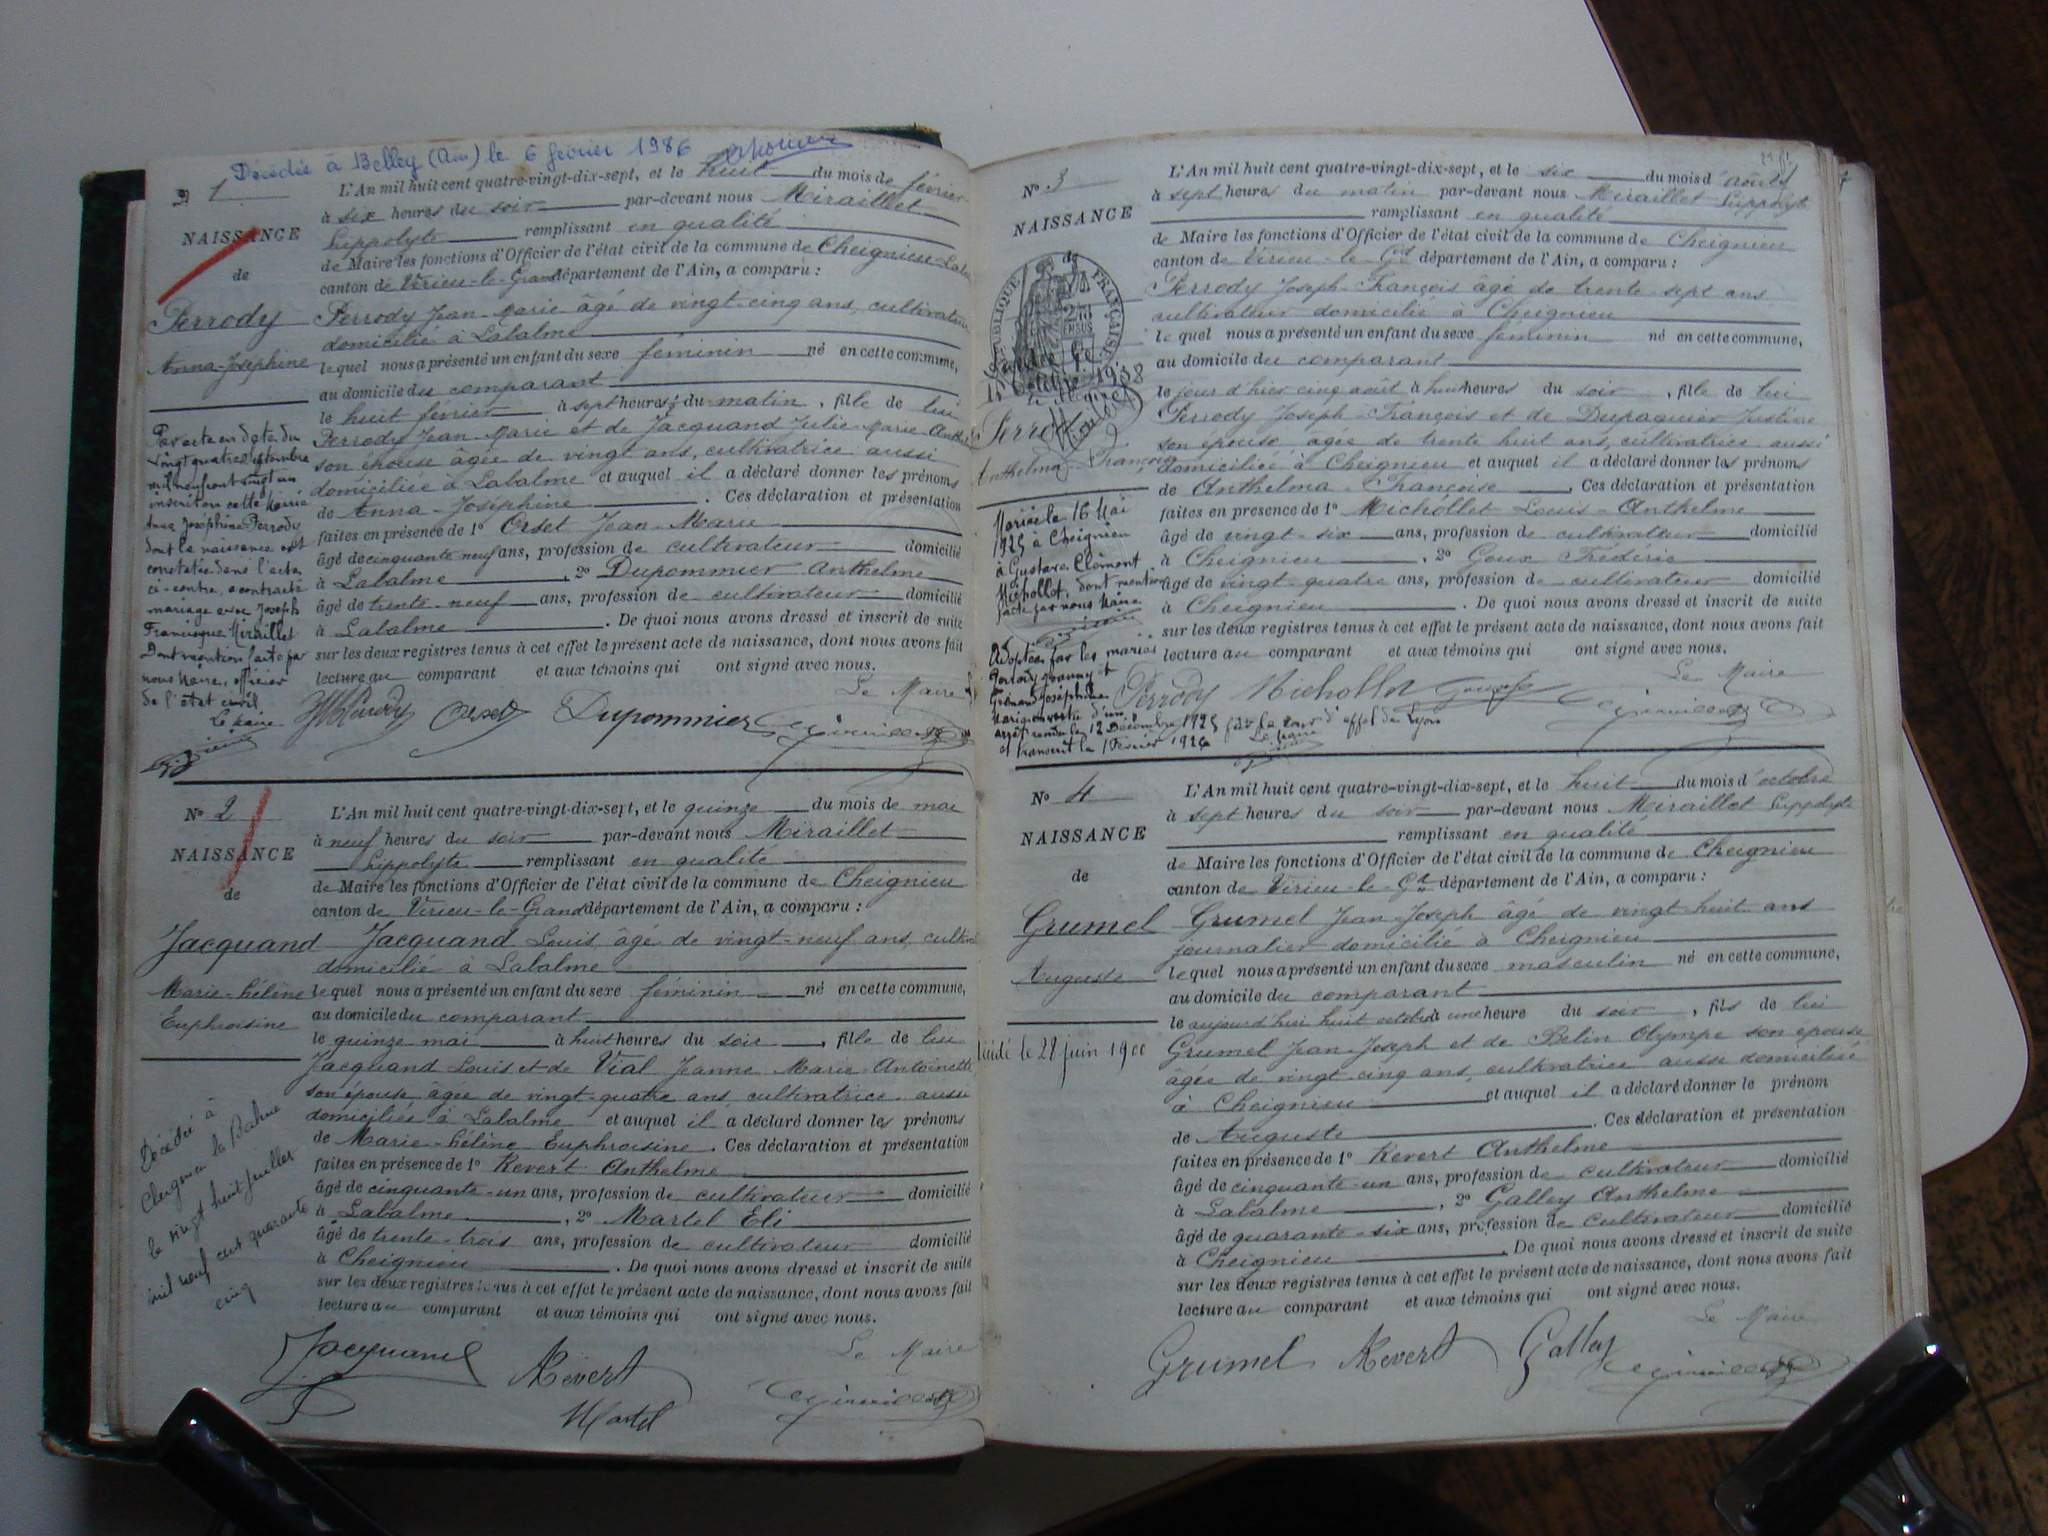 Décédée à Belley (Ain) le 6 février 1986
No 1
NAISSANCE
de
Perrody
Anna-Joséphine
Par acte en date du
vingt quatre septembre
mil neuf cent vingt un
inscrit en cette Mairie
Anna Joséphine Perrody
dont la naissance est
constatée dans l'acte
ci-contre, a contracté
mariage avec Joseph
Francisque Miraillet
Dont mention faite par
nous Maire, officier
de l'état civil.
Le Maire
L'An mil huit cent quatre-vingt-dix-sept, et le huit du mois de février
à six heures du soir par-devant nous Miraillet
Hippolyte remplissant en qualité
de Maire les fonctions d'Officier de l'état civil de la commune de Cheignieu-Laba
canton de Virieu-le-Grand département de l'Ain, a comparu :
Perrody Jean-Marie âgé de vingt-cinq ans, cultivateur
domicilié à Labalme
lequel nous a présenté un enfant du sexe féminin né en cette commune,
au domicile du comparant
le huit février à sept heures du matin, fille de lui
Perrody Jean-Marie et de Jacquand Julie-Marie
son épouse âgée de vingt ans, cultivatrice aussi
domiciliée à Labalme et auquel il a déclaré donner les prénoms
de Anna-Joséphine . Ces déclaration et présentation
faites en présence de 1º Orset Jean-Marie
âgé de cinquante neuf ans, profession de cultivateur domicilié
à Labalme , 2º Dupommier Anthelme
âgé de trente-neuf ans, profession de cultivateur domicilié
à Labalme . De quoi nous avons dressé et inscrit de suite
sur les deux registres tenus à cet effet le présent acte de naissance, dont nous avons fait
lecture au comparant et aux témoins qui ont signé avec nous.
Le Maire
Perrody Orset Dupommier
No 2
NAISSANCE
de
Jacquand
Marie-hélène
Euphroisine
Décédée à
Cheignieu la Balme
le vingt huit juillet
mil neuf cent quarante
cinq
L'An mil huit cent quatre-vingt-dix-sept, et le quinze du mois de mai
à neuf heures du soir par-devant nous Miraillet
Hippolyte remplissant en qualité
de Maire les fonctions d'Officier de l'état civil de la commune de Cheignieu
canton de Virieu-le-Grand département de l'Ain, a comparu :
Jacquand Louis, âgé de vingt-neuf ans, cultiv
domicilié à Labalme
lequel nous a présenté un enfant du sexe féminin né en cette commune,
au domicile du comparant
le quinze mai à huit heures du soir, fille de lui
Jacquand Louis et de Vial Jeanne Marie Antoinette
son épouse âgée de vingt-quatre ans cultivatrice aussi
domiciliée à Labalme et auquel il a déclaré donner les prénoms
de Marie-hélène Euphroisine . Ces déclaration et présentation
faites en présence de 1º Revert Anthelme
âgé de cinquante-un ans, profession de cultivateur domicilié
à Labalme , 2º Martel Eli
âgé de trente-trois ans, profession de cultivateur domicilié
à Cheignieu . De quoi nous avons dressé et inscrit de suite
sur les deux registres tenus à cet effet le présent acte de naissance, dont nous avons fait
lecture au comparant et aux témoins qui ont signé avec nous.
Le Maire
Jacquand Revert
Martel
No 3
NAISSANCE
de
RÉPUBLIQUE FRANÇAISE
Décédée le
15 Octobre 1938
le Maire
Perrody
Anthelma-Françoise
Mariée le 16 Mai
1925 à Cheignieu
à Gustave Clément
Michollot, dont mention
faite par nous Maire
Adoptée par les mariés
arrêt rendu le 12 Décembre 1925 par la cour d'appel de Lyon
et transcrit le 1 Février 1926 Le Maire
L'An mil huit cent quatre-vingt-dix-sept, et le six du mois d'août
à sept heures du matin par-devant nous Miraillet Hippolyte
remplissant en qualité
de Maire les fonctions d'Officier de l'état civil de la commune de Cheignieu
canton de Virieu-le-Gd département de l'Ain, a comparu :
Perrody Joseph-François âgé de trente-sept ans
cultivateur domicilié à Cheignieu
lequel nous a présenté un enfant du sexe féminin né en cette commune,
au domicile du comparant
le jour d'hier cinq août à huit heures du soir, fille de lui
Perrody Joseph-François et de Dupaquier Justine
son épouse âgée de trente huit ans, cultivatrice aussi
domiciliée à Cheignieu et auquel il a déclaré donner les prénoms
de Anthelma-Françoise . Ces déclaration et présentation
faites en présence de 1º Michollet Louis-Anthelme
âgé de vingt-six ans, profession de cultivateur domicilié
à Cheignieu , 2º Goux Frédéric
âgé de vingt-quatre ans, profession de cultivateur domicilié
à Cheignieu . De quoi nous avons dressé et inscrit de suite
sur les deux registres tenus à cet effet le présent acte de naissance, dont nous avons fait
lecture au comparant et aux témoins qui ont signé avec nous.
Le Maire
Perrody Michollet
No 4
NAISSANCE
de
Grumel
Auguste
décédé le 28 juin 1900
L'An mil huit cent quatre-vingt-dix-sept, et le huit du mois d'octobre
à sept heures du soir par-devant nous Miraillet Hippolyte
remplissant en qualité
de Maire les fonctions d'Officier de l'état civil de la commune de Cheignieu
canton de Virieu-le-Gd département de l'Ain, a comparu :
Grumel Jean-Joseph âgé de vingt-huit ans
journalier domicilié à Cheignieu
lequel nous a présenté un enfant du sexe masculin né en cette commune,
au domicile du comparant
le aujourd'hui huit octobre à une heure du soir, fils de lui
Grumel Jean-Joseph et de Belin Olympe son épouse
âgée de vingt-cinq ans, cultivatrice aussi domiciliée
à Cheignieu et auquel il a déclaré donner le prénom
de Auguste . Ces déclaration et présentation
faites en présence de 1º Revert Anthelme
âgé de cinquante-un ans, profession de cultivateur domicilié
à Labalme , 2º Galley Anthelme
âgé de quarante-six ans, profession de cultivateur domicilié
à Cheignieu . De quoi nous avons dressé et inscrit de suite
sur les deux registres tenus à cet effet le présent acte de naissance, dont nous avons fait
lecture au comparant et aux témoins qui ont signé avec nous.
Le Maire
Grumel Revert Galley